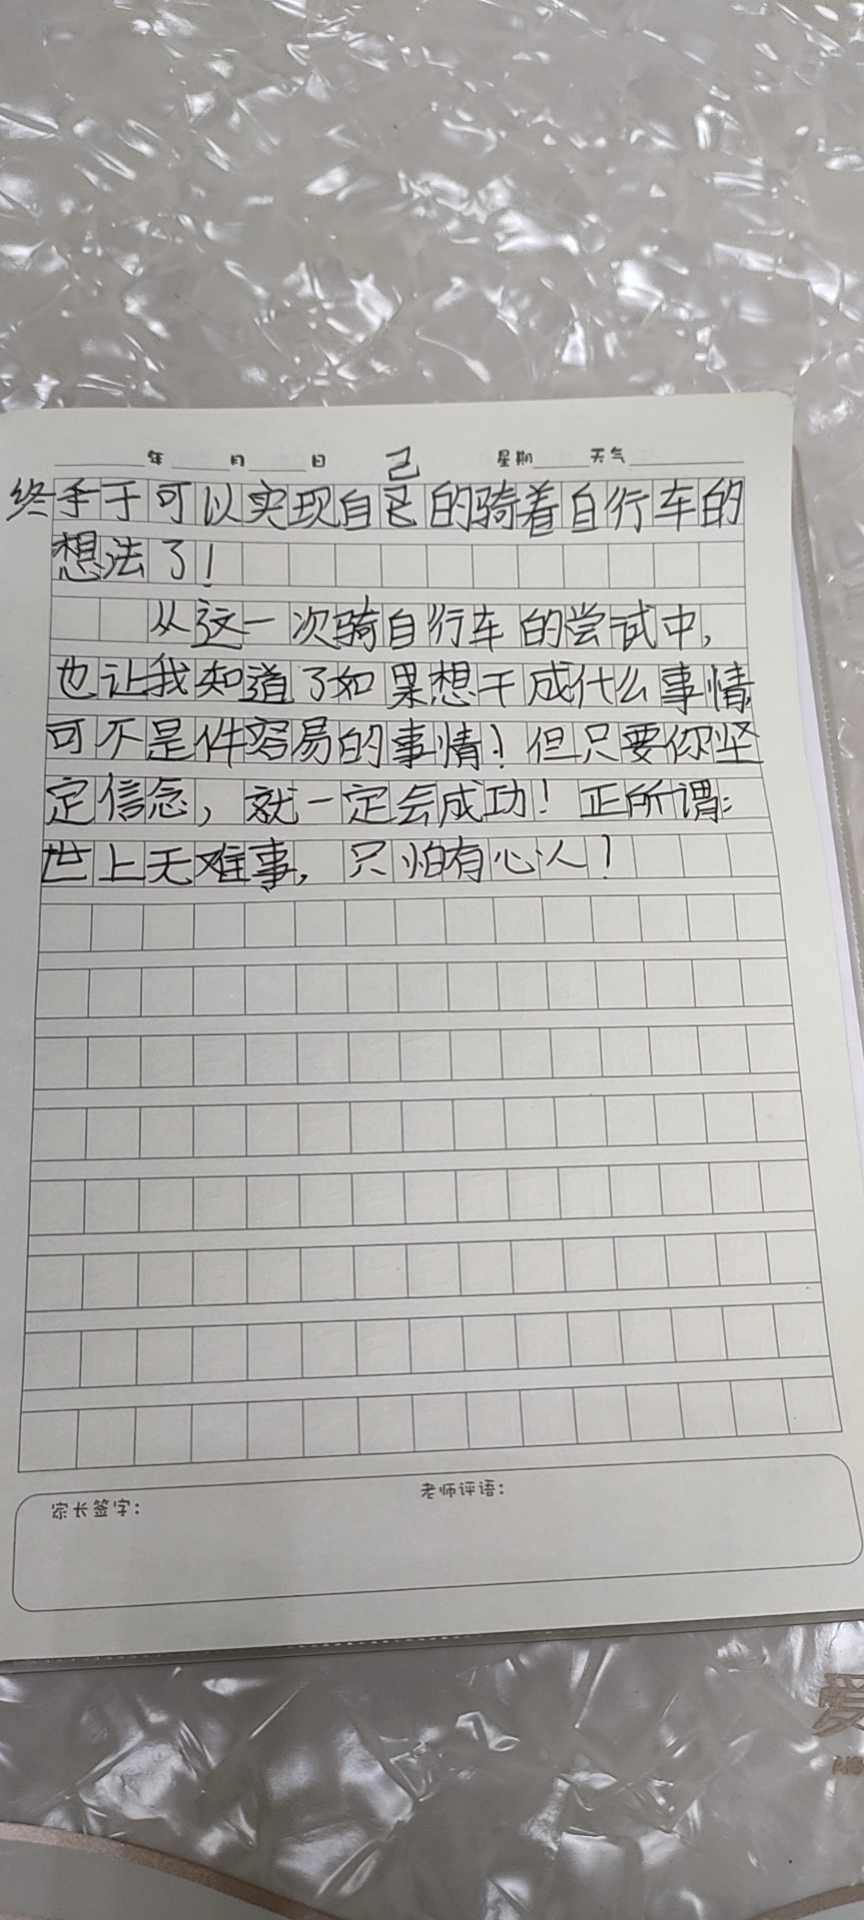 年 月 日 星期 天气
己
终手于可以实现自己的骑着自行车的
想法了!
从这一次骑自行车的尝试中,
也让我知道了如果想干成什么事情
可不是件容易的事情!但只要你坚
定信念,就一定会成功!正所谓:
世上无难事,只怕有心人!
家长签字: 老师评语:
爱